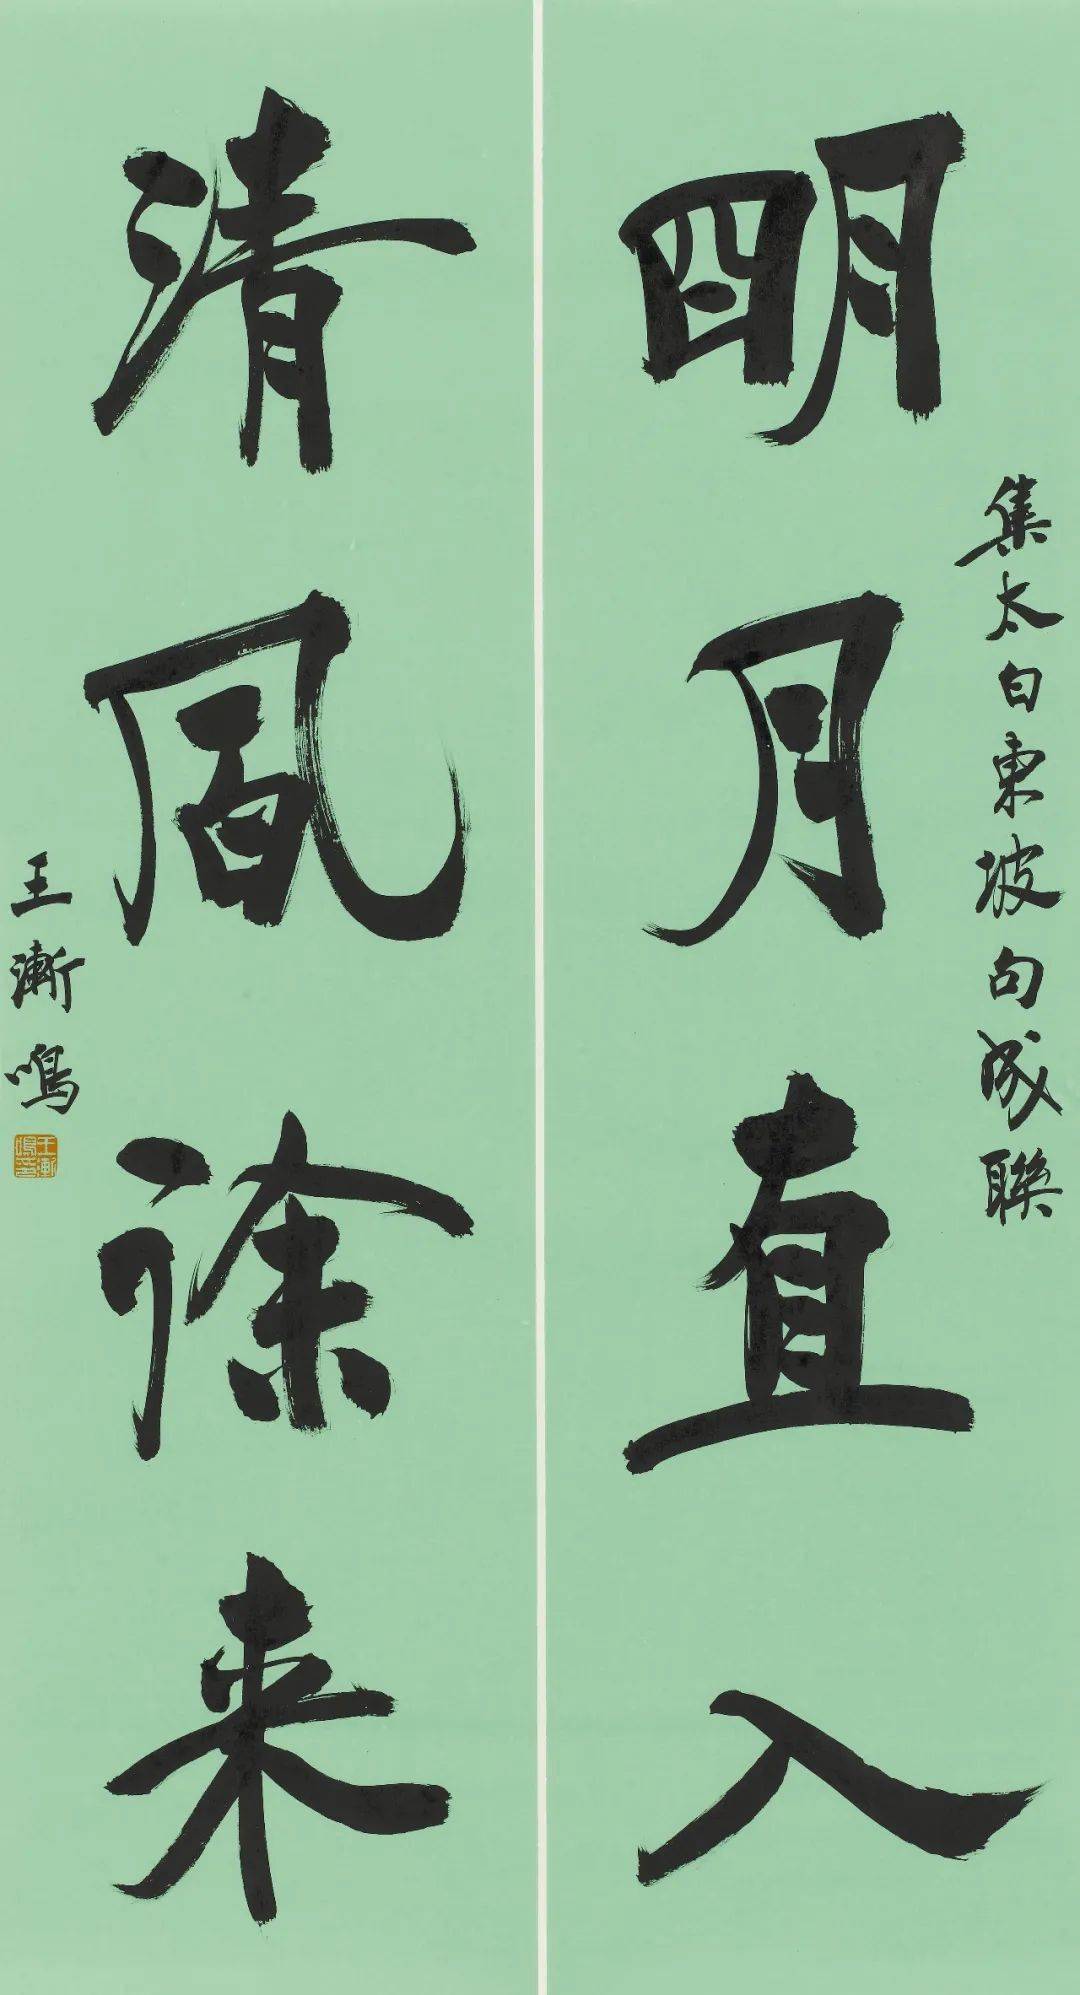 集太白東坡句成聯
明月直入
清風徐来
王漸鳴
王漸鳴印